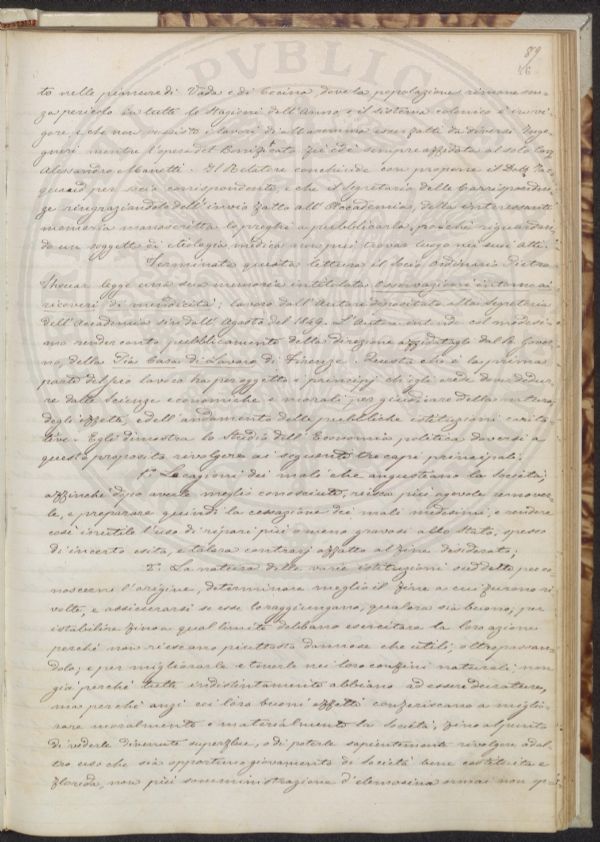 89
46
to nelle pianure di Vada e di Cecina, dove la popolazione rimane sen-
za pericolo in tutte le Stagioni dell'Anno, e il sistema colonico è in vi-
gore e che non consisté i lavori di all'annuncio eseguiti da diversi Inge-
gneri mentre l'opera del Bonificato fu ed è sempre affidata al solo Cav.
Alessandro Manetti. Il Relatore conchiude con proporre il Dott. Sal-
quaid per socio corrispondente, e che il Segretario delle Corrisponden-
ze ringraziandolo dell'invio fatto all'Accademia, della interessante
memoria manoscritta lo preghi a pubblicarla, poichè riguardan-
do un soggetto di etiologia medica non può trovar luogo nei suoi Atti.
Terminata questa lettura il Socio Ordinario Pietro
Thouar legge una sua memoria intitolata Osservazioni intorno ai
ricoveri di mendicità; lavoro dall'Autore depositato alla Segreteria
dell'Accademia sin dall'Agosto del 1849. L'Autore intende col medesi-
mo render conto pubblicamente della direzione affidatagli dal R. Gover-
no, della Pia Casa di Lavoro di Firenze. Questa che è la prima
parte del suo lavoro ha per oggetto i principj ch'egli crede dover dedur-
re dalle Scienze economiche e morali per giudicare della natura,
degli effetti, e dell'andamento delle pubbliche istituzioni carita-
tive. Egli dimostra lo studio dell'Economia politica doversi a
questo proposito rivolgere ai seguenti tre capi principali.
1.° Le cagioni dei mali che angustiano la Società;
affinchè dopo averle meglio conosciute, riesca più agevole rimover-
le, e preparare quindi la cessazione dei mali medesimi, e rendere
così inutile l'uso di ripari più o meno gravosi allo Stato, spesso
di incerto esito, e talora contrarj affatto al fine desiderato;
2.° La natura delle varie istituzioni suddette per co-
noscerne l'origine, determinare meglio il fine a cui furono ri-
volte, e assicurarsi se esse lo raggiungano, qualora sia buono; per
istabilire fino a qual limite debbano esercitare la loro azione
perchè non riescano piuttosto dannose che utili, oltrepassan-
dolo; e per migliorarle e tenerle nei loro confini naturali; non
già perchè tutte indistintamente abbiano ad essere durature,
ma perchè anzi coi loro buoni effetti conferiscano a miglio-
rare moralmente e materialmente la Società, fino al punto
di vederle divenute superflue, o di poterle sapientemente rivolgere ad al-
tro uso che sia opportuno giovamento di Società bene costituita e
florida, non più somministrazione d'elemosina ormai non op-